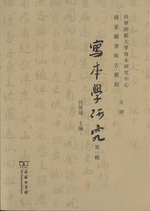 西華師範大學寫本研究中心
國家圖書館古籍館
主辦
寫本學研究
第一輯
伏俊璉 主編
商務印書館